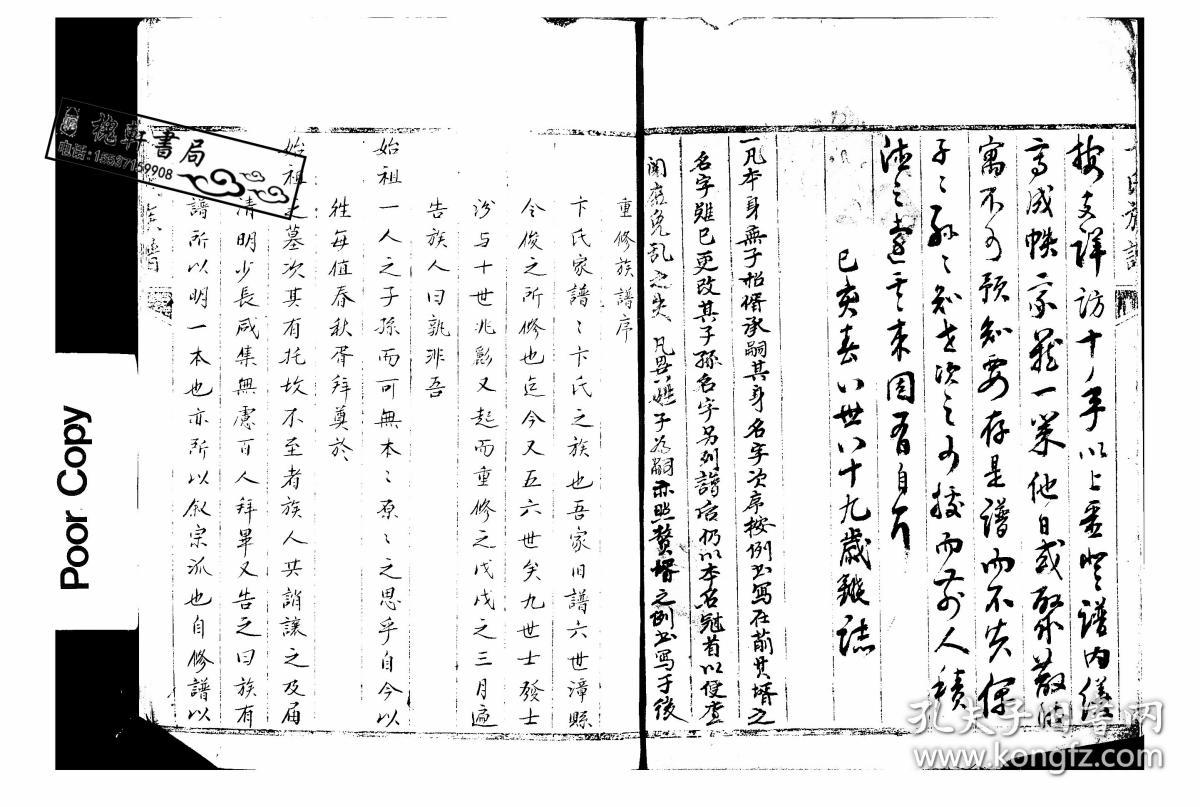 卞氏族譜
按支詳訪十年以上盡登譜內繕
寫成帙家藏一策他日或聚散流
寓不可預知要存是譜而不失俾
子〻孫〻知世次之可據而前人積
德之遠其來固有自矣
已亥春八世八十九歲鏦誌
一凡本身無子招壻承嗣其身名字次序按例出寫在前其壻之
名字雖已更改其子孫名字另列譜后仍以本名冠首以便查
閱庶免亂之失凡異姓子為嗣亦照贅壻之例出寫于後
重修族譜序
卞氏家譜〻卞氏之族也吾家旧譜六世漳縣
令俊之所修也迄今又五六世矣九世士發士
汾与十世兆彭又起而重修之戊戌之三月遍
告族人曰孰非吾
始祖一人之子孫而可無本〻原〻之思乎自今以
往每值春秋胥拜奠於
始祖之墓次其有托故不至者族人共誚讓之及届
清明少長咸集無慮百人拜畢又告之曰族有
譜所以明一本也亦所以叙宗派也自修譜以
族譜
槐軒書局
电话:15537159908
Poor Copy
孔夫子旧书网
www.kongfz.com